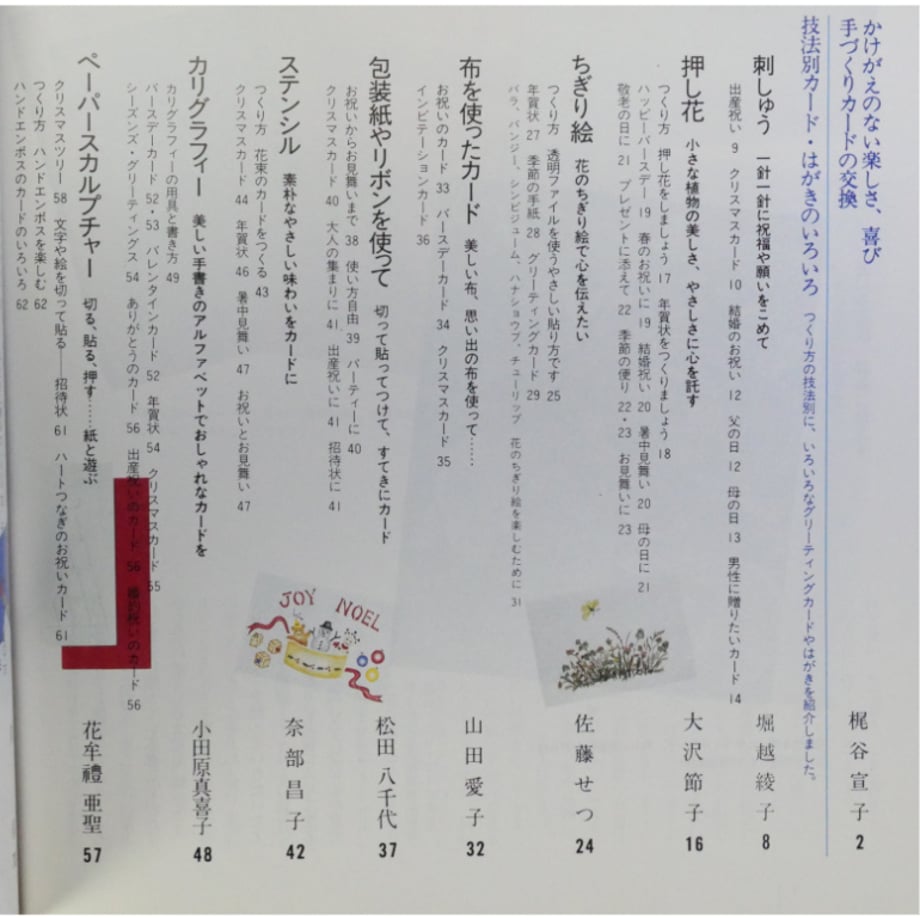 かけがえのない楽しさ、喜び
手づくりカードの交換 梶谷宣子 2
技法別カード・はがきのいろいろ つくり方の技法別に、いろいろなグリーティングカードやはがきを紹介しました。
刺しゅう 一針一針に祝福や願いをこめて 堀越綾子 8
出産祝い 9 クリスマスカード 10 結婚のお祝い 12 父の日 12 母の日 13 男性に贈りたいカード 14
押し花 小さな植物の美しさ、やさしさに心を託す 大沢節子 16
つくり方 押し花をしましょう 17 年賀状をつくりましょう 18
ハッピーバースデー 19 春のお祝いに 19 結婚祝い 20 暑中見舞い 20 母の日に 21
敬老の日に 21 プレゼントに添えて 22 季節の便り 22 23 お見舞いに 23
ちぎり絵 花のちぎり絵で心を伝えたい 佐藤せつ 24
つくり方 透明ファイルを使うやさしい貼り方です 25
年賀状 27 季節の手紙 28 グリーティングカード 29
バラ、パンジー、シンビジューム、ハナショウブ、チューリップ 花のちぎり絵を楽しむために 31
布を使ったカード 美しい布、思い出の布を使って…… 山田愛子 32
お祝いのカード 33 バースデーカード 34 クリスマスカード 35
インビテーションカード 36
包装紙やリボンを使って 切って貼ってつけて、すてきにカード 松田八千代 37
お祝いからお見舞いまで 38 使い方自由 39 パーティーに 40
クリスマスカード 40 大人の集まりに 41 出産祝いに 41 招待状に 41
ステンシル 素朴なやさしい味わいをカードに 奈部昌子 42
つくり方 花束のカードをつくる 43
クリスマスカード 44 年賀状 46 暑中見舞い 47 お祝いとお見舞い 47
JOY NOEL
カリグラフィー 美しい手書きのアルファベットでおしゃれなカードを 小田原真喜子 48
カリグラフィーの用具と書き方 49
バースデーカード 52・53 バレンタインカード 52 年賀状 54 クリスマスカード 55
シーズンズ・グリーティングス 54 ありがとうのカード 56 出産祝いのカード 56 婚約祝いのカード 56
ペーパースカルプチャー 切る、貼る、押す……紙と遊ぶ 花牟禮亜聖 57
クリスマスツリー 58 文字や絵を切って貼る――招待状 61 ハートつなぎのお祝いカード 61
つくり方 ハンドエンボスを楽しむ 62
ハンドエンボスのカードのいろいろ 62